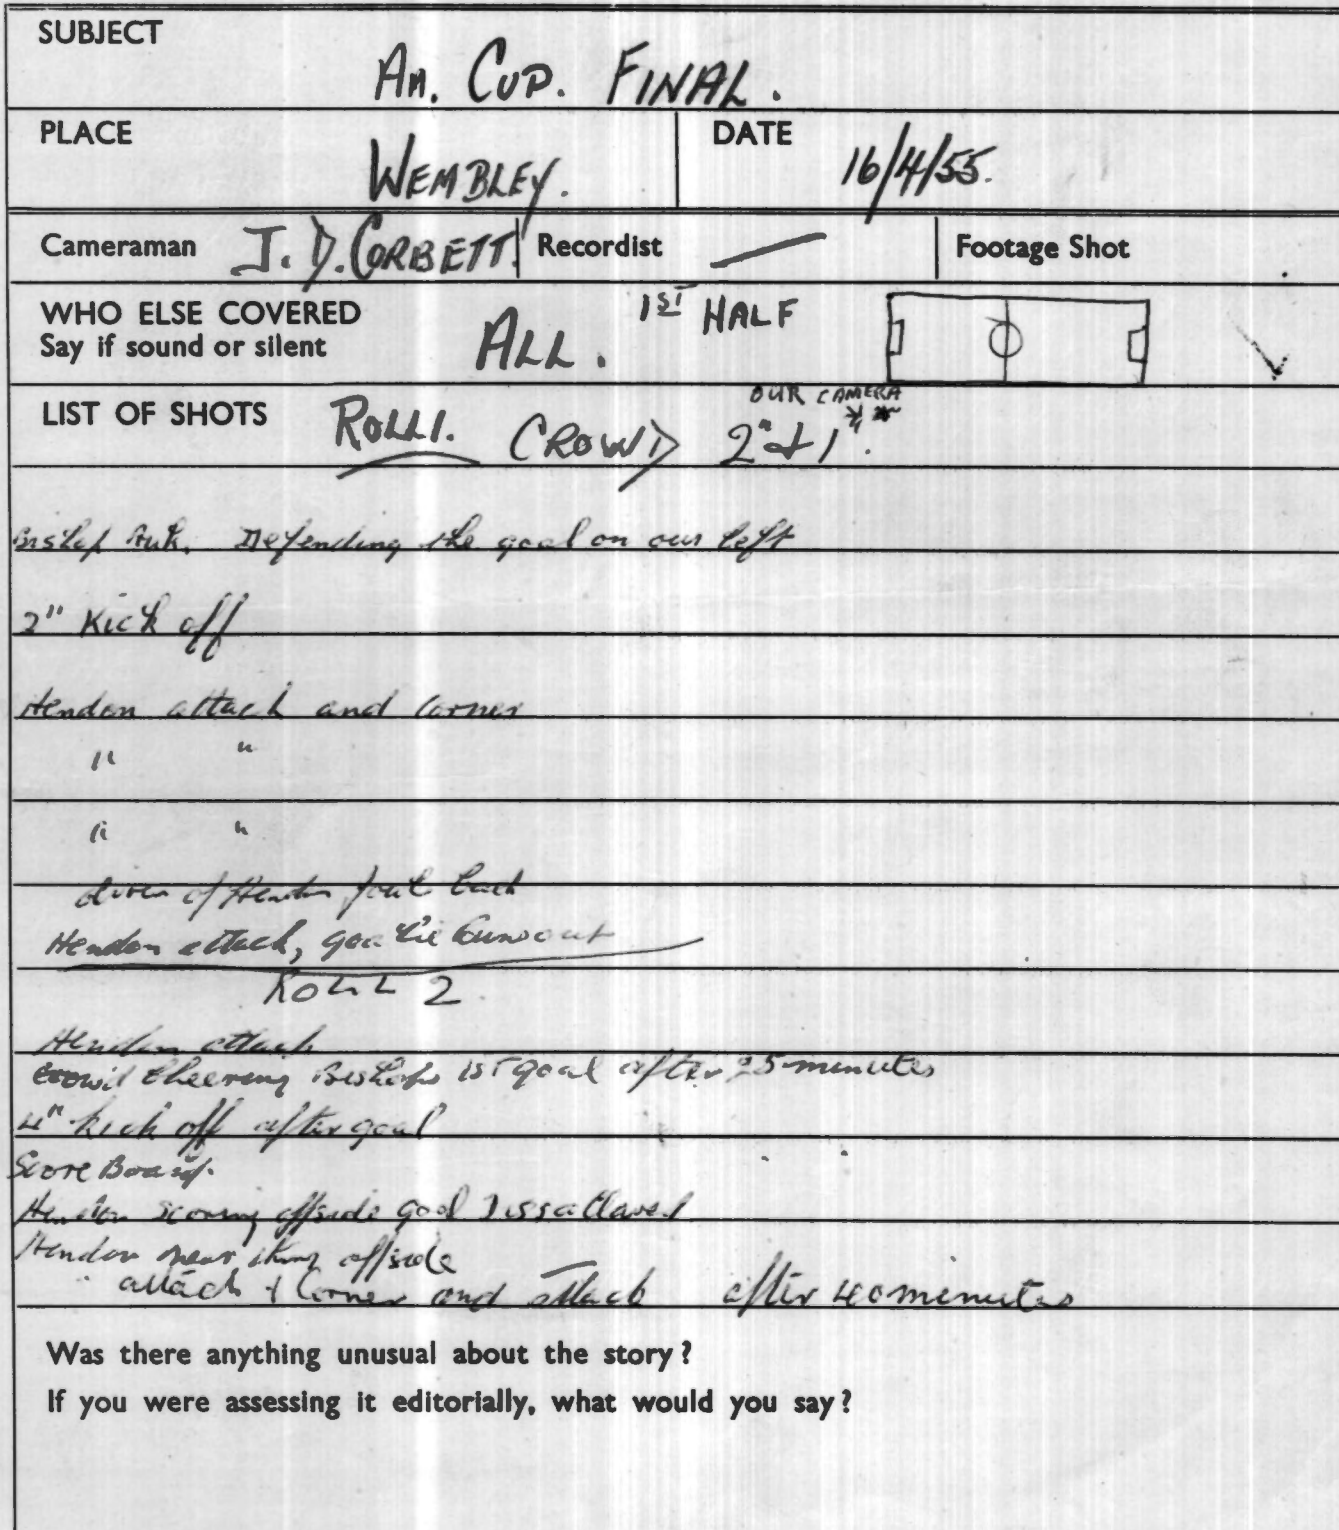 SUBJECT
AM. CUP. FINAL.
PLACE
WEMBLEY.
DATE
16/4/55.
Cameraman J. D. CORBETT. Recordist — Footage Shot
WHO ELSE COVERED
Say if sound or silent
ALL. 1ST HALF
OUR CAMERA
LIST OF SHOTS ROLL 1. CROWD 2" & 1"
Bishop Auk. Defending the goal on our left
2" Kick off
Hendon attack and Corner
" "
" "
of Hendon back
Hendon attack, goalie out
ROLL 2
Hendon attack
Crowd cheering Bishops 1ST goal after 25 minutes
4" kick off after goal
Score Board.
Hendon scoring offside goal Dissallowed
Hendon offside
attack & Corner and attack after 40 minutes
Was there anything unusual about the story?
If you were assessing it editorially, what would you say?